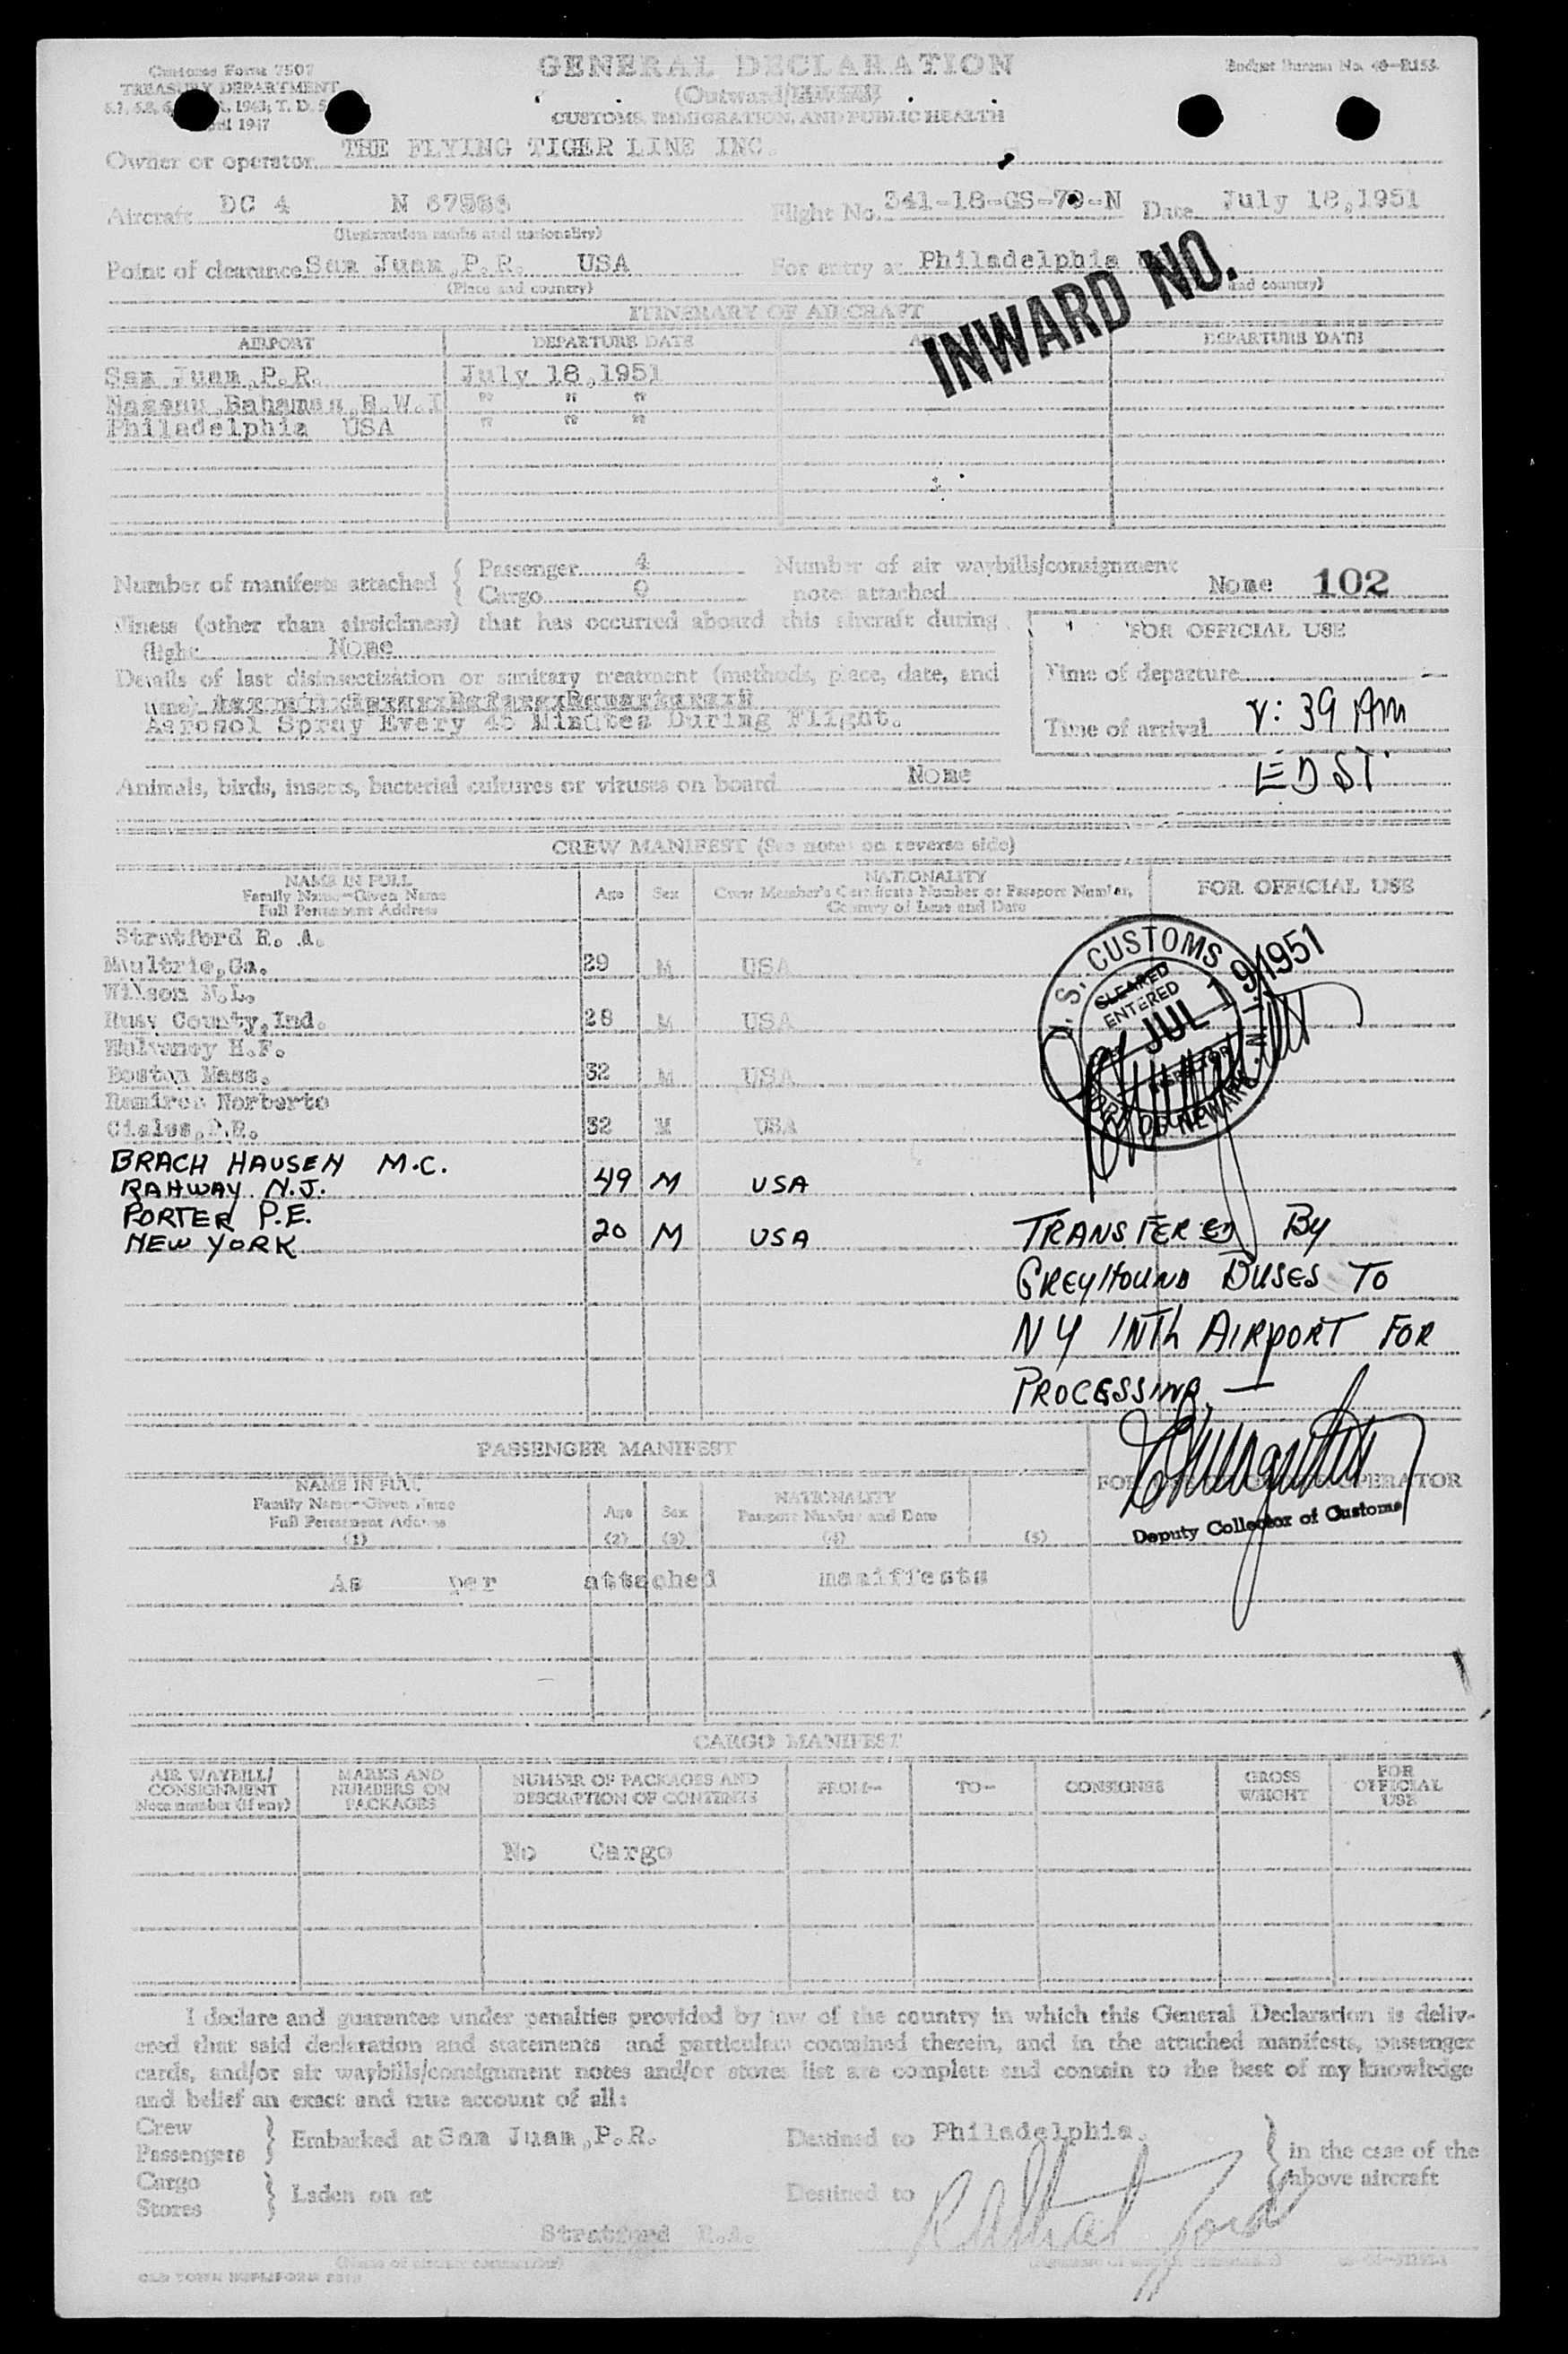 Customs Form 7507
TREASURY DEPARTMENT
1943, T. D.
1947
GENERAL DECLARATION
(Outward/
CUSTOMS, IMMIGRATION, AND PUBLIC HEALTH
Budget Bureau No.
Owner or operator THE FLYING TIGER LINE INC.
Aircraft DC 4 N
(Registration marks and nationality)
Flight No. Date July 18,1951
Point of clearance San Juan,P.R. USA
(Place and country)
For entry at Philadelphia
and country)
INWARD NO.
ITINERARY OF AIRCRAFT
AIRPORT DEPARTURE DATE DEPARTURE DATE
San Juan,P.R. July 18,1951
Nassau,Bahamas,B.W.I " " "
Philadelphia USA " " "
Number of manifests attached { Passenger 4
Cargo 0
Number of air waybills/consignment
notes attached None 102
Illness (other than airsickness) that has occurred aboard this aircraft during
flight None
Details of last disinsectization or sanitary treatment (methods, place, date, and
time)
Aerosol Spray Every 45 Minutes During Flight.
FOR OFFICIAL USE
Time of departure
Time of arrival : 39 AM
EDST
Animals, birds, insects, bacterial cultures or viruses on board None
CREW MANIFEST (See notes on reverse side)
NAME IN FULL
Family Name—Given Name
Full Permanent Address
Age Sex
NATIONALITY
Crew Member's Certificate Number or Passport Number,
Country of Issue and Date
FOR OFFICIAL USE
Stratford R. A.
Moultrie,Ga. 29 M USA
Wilson N.L.
Rush County,Ind. 28 M USA
Mulvaney H.F.
Boston Mass. 32 M USA
Ramirez Norberto
Ciales,P.R. 32 M USA
BRACH HAUSEN M.C.
RAHWAY N.J. 49 M USA
PORTER P.E.
NEW YORK 20 M USA
U. S. CUSTOMS
CLEARED
ENTERED
JUL 19 1951
INSPECTOR
PORT OF NEWARK, N.J.
TRANSFERED BY
GREYHOUND BUSES TO
NY INTL AIRPORT FOR
PROCESSING. —
Deputy Collector of Customs
PASSENGER MANIFEST
NAME IN FULL
Family Name—Given Name
Full Permanent Address
(1)
Age
(2)
Sex
(3)
NATIONALITY
Passport Number and Date
(4)
(5)
FOR OPERATOR
As per attached maniffests
CARGO MANIFEST
AIR WAYBILL/
CONSIGNMENT
Note number (if any)
MARKS AND
NUMBERS ON
PACKAGES
NUMBER OF PACKAGES AND
DESCRIPTION OF CONTENTS
FROM—
TO—
CONSIGNEE
GROSS
WEIGHT
FOR
OFFICIAL
USE
No Cargo
I declare and guarantee under penalties provided by law of the country in which this General Declaration is deliv-
ered that said declaration and statements and particulars contained therein, and in the attached manifests, passenger
cards, and/or air waybills/consignment notes and/or stores list are complete and contain to the best of my knowledge
and belief an exact and true account of all:
Crew
Passengers } Embarked at San Juan,P.R. Destined to Philadelphia. } in the case of the
Cargo
Stores } Laden on at Destined to above aircraft
Stratford R.A.
R A Stratford
(Name of aircraft commander)